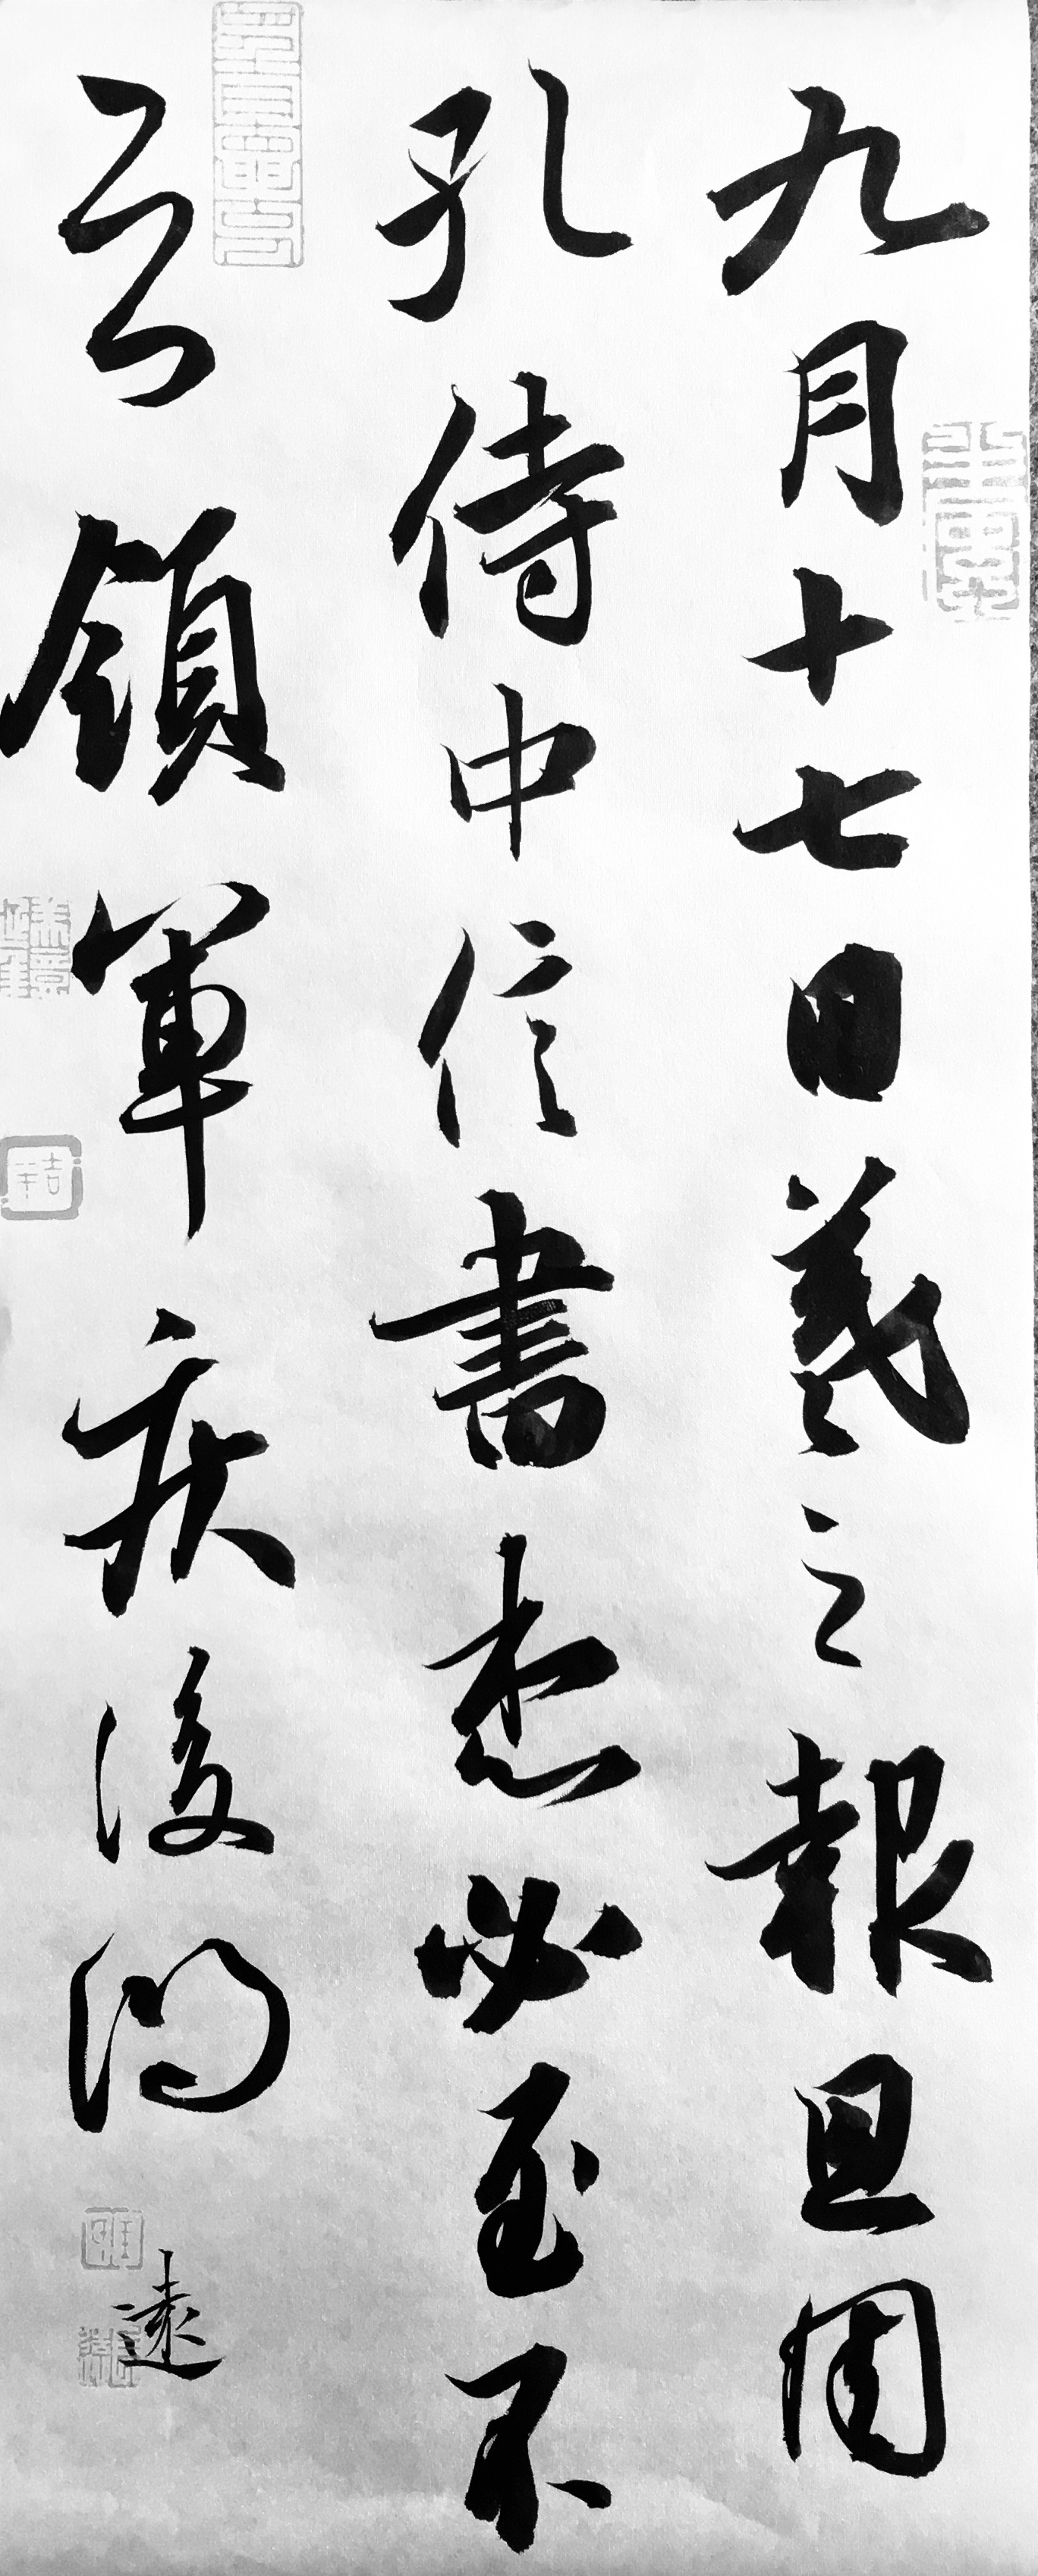 九月十七日羲之報且因
孔侍中信書想必至不
知領軍疾後問
遠